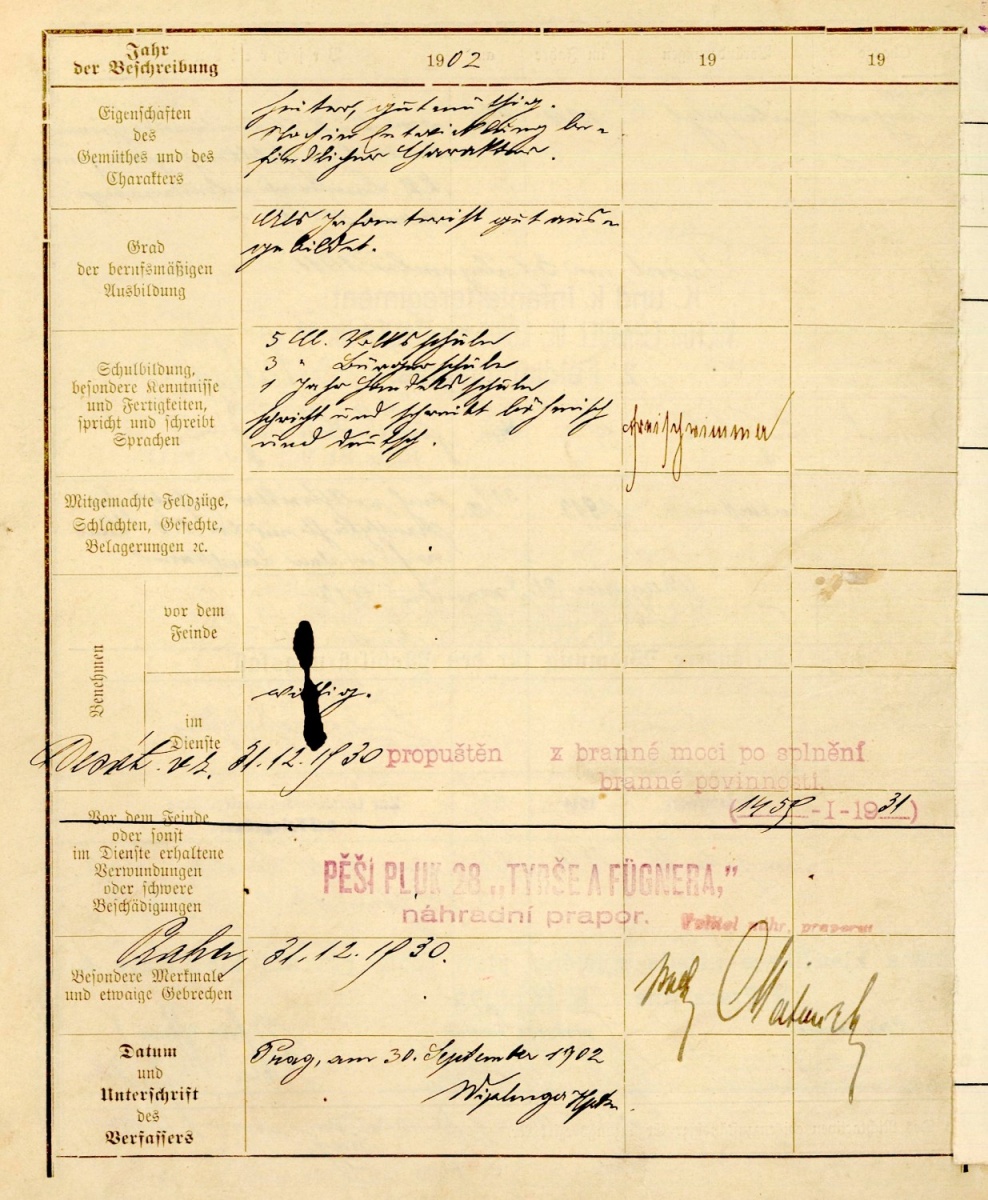 Jahr
der Beschreibung
1902
19
19
Eigenschaften
des
Gemüthes und des
Charakters
heiter, gutmüthig.
Noch in Entwicklung be-
findlicher Charakter.
Grad
der berufsmäßigen
Ausbildung
Als Infanterist gut aus-
gebildet.
Schulbildung,
besondere Kenntnisse
und Fertigkeiten,
spricht und schreibt
Sprachen
5 Cl. Volksschule
3 " Bürgerschule
1 Jahr Handelsschule
spricht und schreibt böhmisch
und deutsch.
Freischwimmer
Mitgemachte Feldzüge,
Schlachten, Gefechte,
Belagerungen ꝛc.
Benehmen
vor dem
Feinde
im
Dienste
willig.
31.12.1930 propuštěn z branné moci po splnění
branné povinnosti.
-I-1931)
Vor dem Feinde
oder sonst
im Dienste erhaltene
Verwundungen
oder schwere
Beschädigungen
PĚŠÍ PLUK 28 „TYRŠE A FÜGNERA,"
náhradní prapor.
Velitel náhr. praporu
Praha, 31.12.1930.
Besondere Merkmale
und etwaige Gebrechen
Datum
und
Unterschrift
des
Verfassers
Prag, am 30. September 1902
Hptm